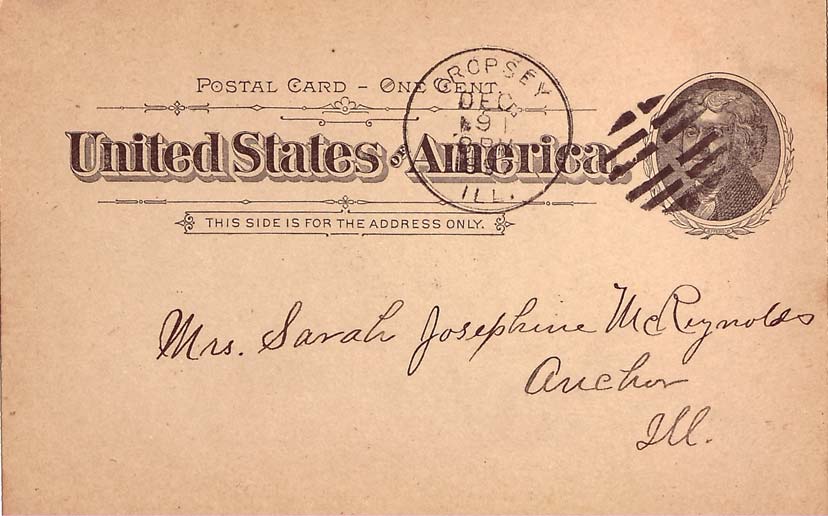 POSTAL CARD – ONE CENT.
United States of America.
THIS SIDE IS FOR THE ADDRESS ONLY.
CROPSEY
DEC
ILL.
Mrs. Sarah Josephine McReynolds
Anchor
Ill.